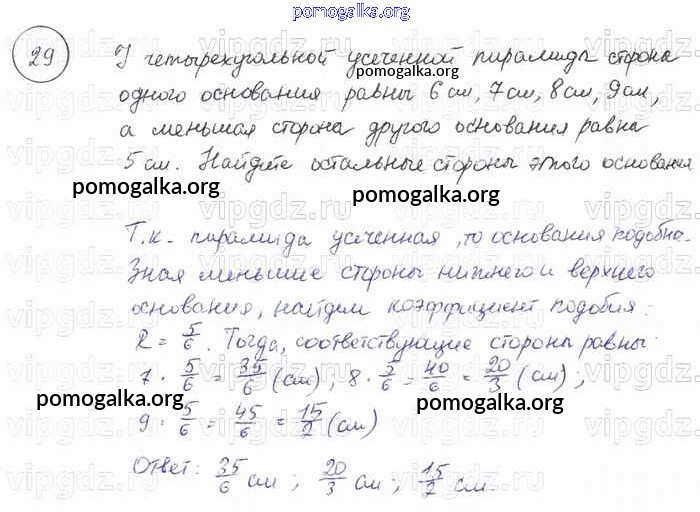 pomogalka.org
29
У четырехугольной усеченной пирамиды стороны
pomogalka.org
одного основания равны 6 см, 7 см, 8 см, 9 см,
а меньшая сторона другого основания равна
5 см. Найдите остальные стороны этого основания
pomogalka.org pomogalka.org
Т.к. пирамида усеченная, то основания подобны.
Зная меньшие стороны нижнего и верхнего
основания, найдем коэффициент подобия:
k = 5/6. Тогда, соответствующие стороны равны:
7 · 5/6 = 35/6 (см); 8 · 5/6 = 40/6 = 20/3 (см);
pomogalka.org pomogalka.org
9 · 5/6 = 45/6 = 15/2 (см)
Ответ: 35/6 см; 20/3 см; 15/2 см.
vipgdz.ru